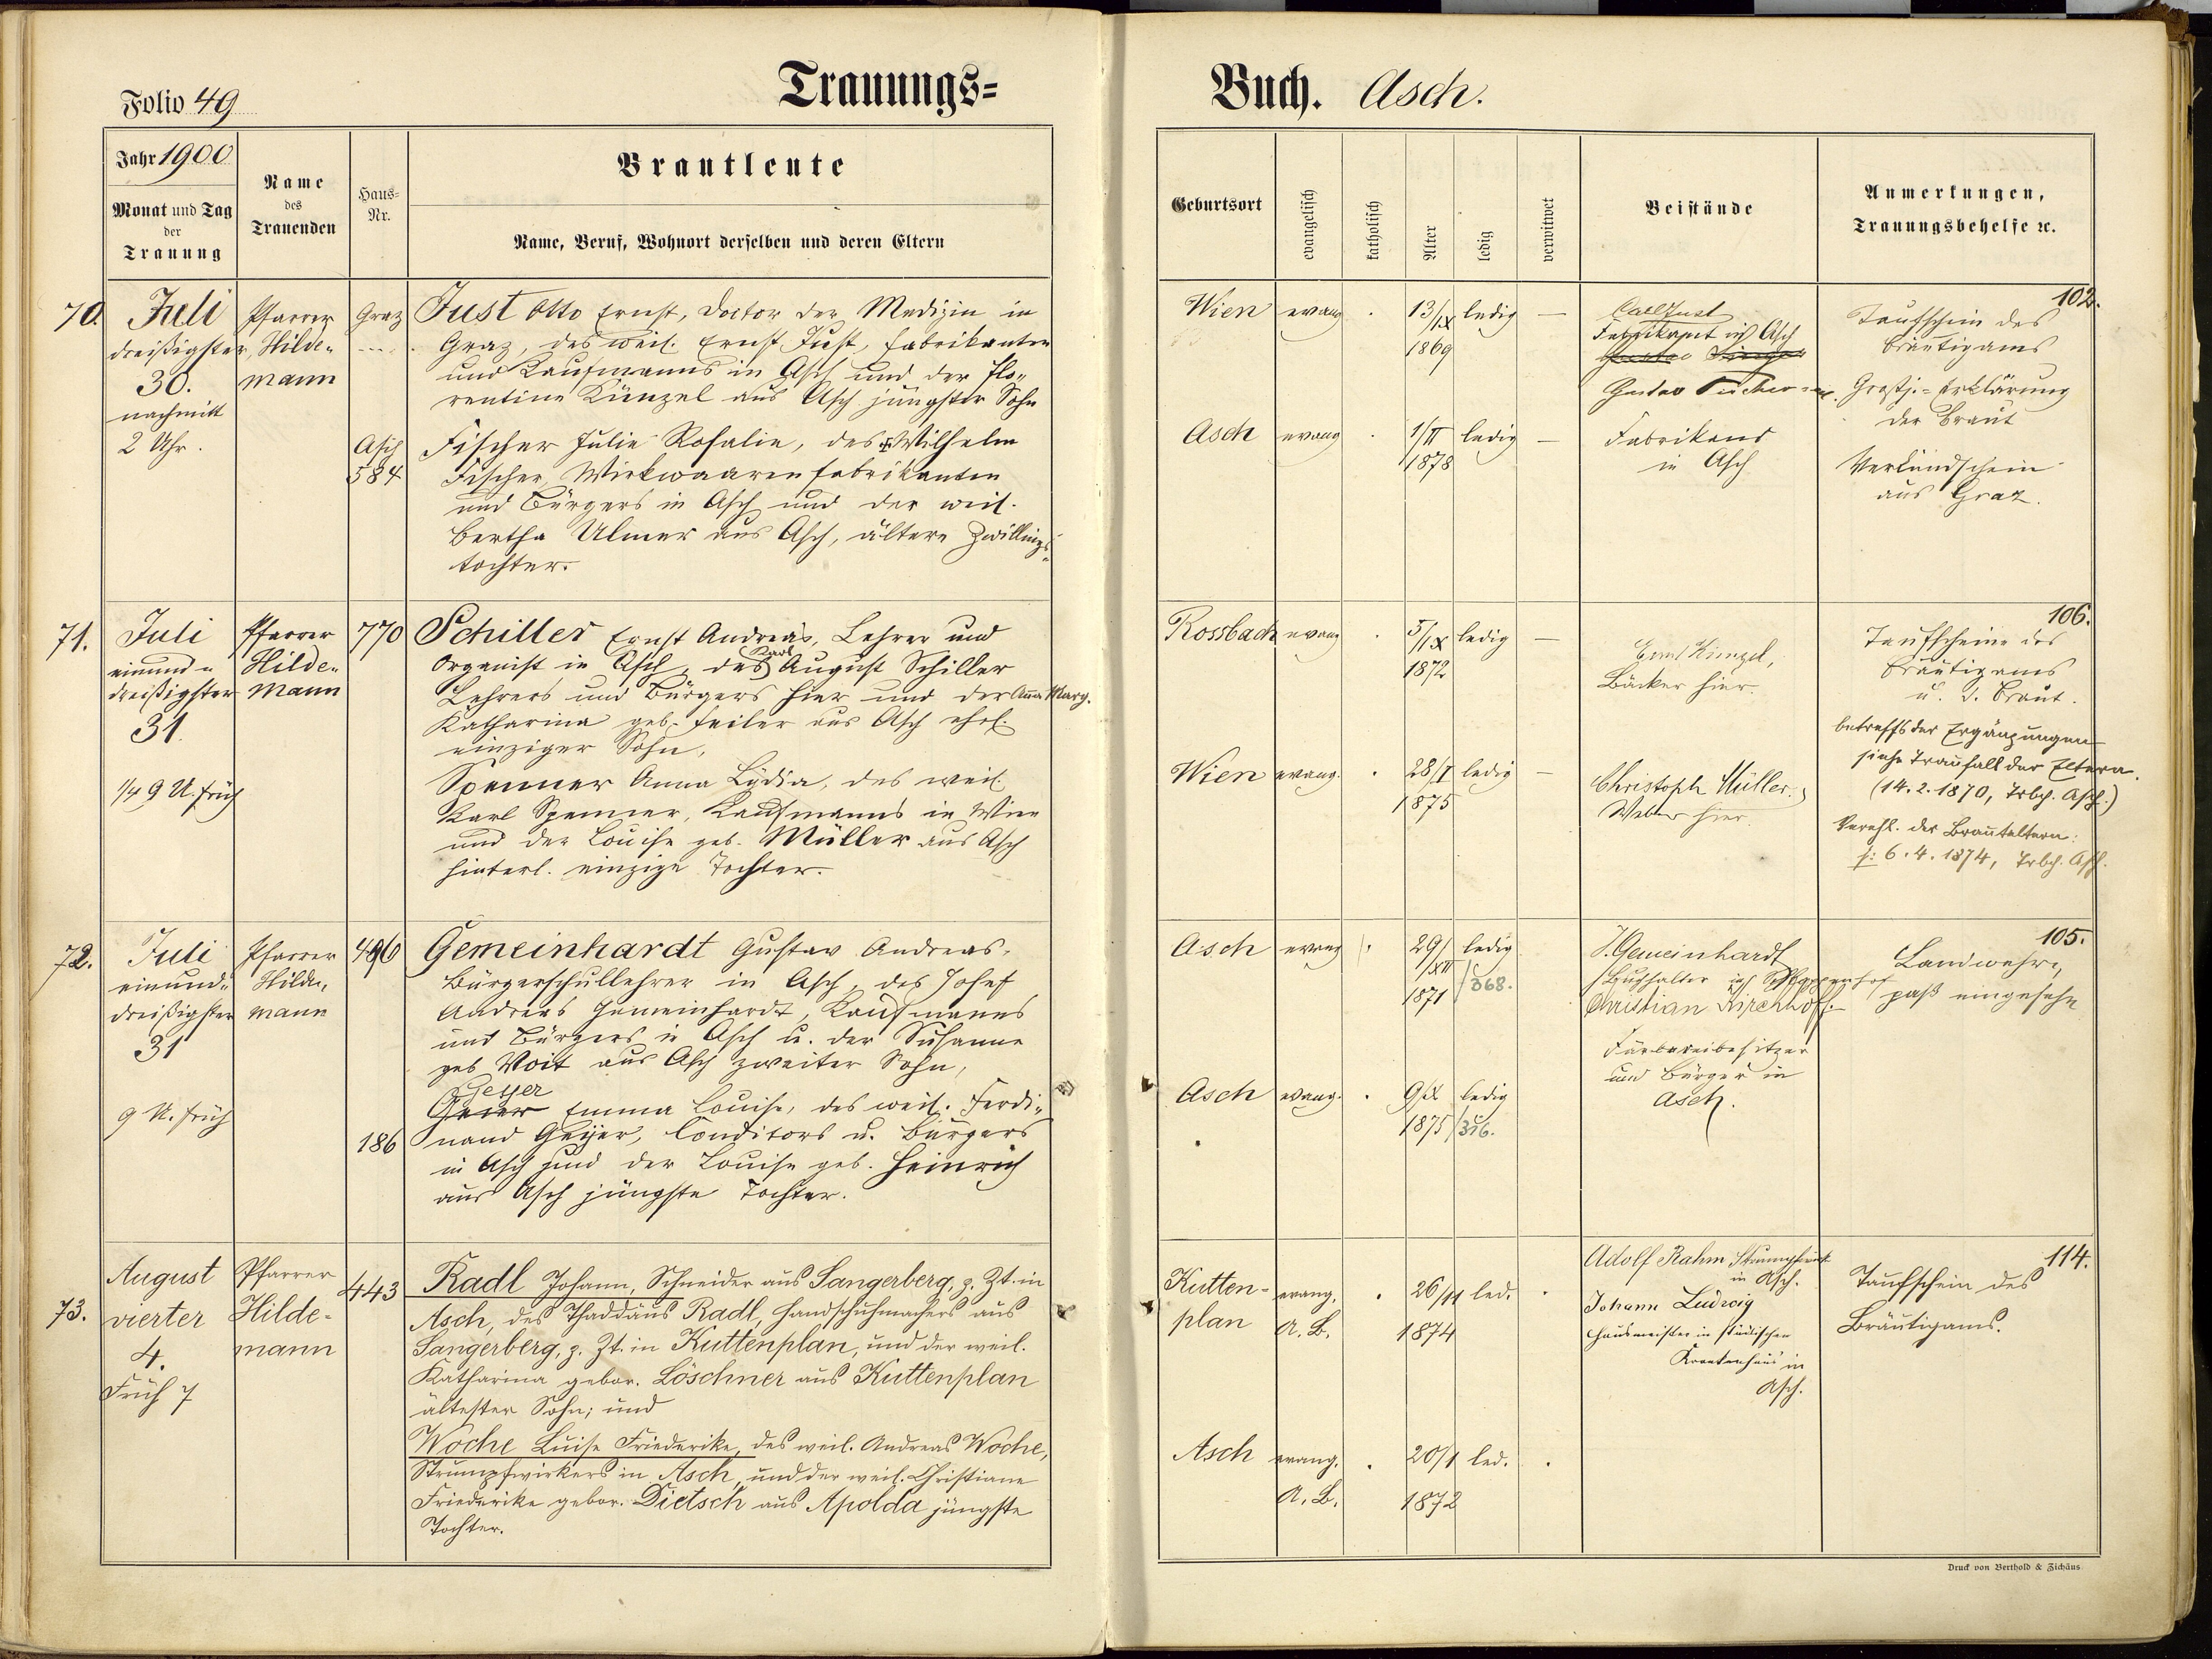 Trauungs=
Folio 49
Jahr 1900
Monat und Tag
der
Trauung
Name
des
Trauenden
Haus=
Nr.
Brautleute
Name, Beruf, Wohnort derselben und deren Eltern
70.
Juli
dreißigster
30.
nachmitt
2 Uhr.
Pfarrer
Hilde„
mann
Graz
Just Otto Ernst, Doctor der Medizin in
Graz, des weil. Ernst Just, Fabrikanten
und Kaufmanns in Asch und der Flo„
rentine Künzel aus Asch jüngster Sohn
Asch
584
Fischer Julie Rosalie, des Wilhelm
Fischer, Wirkwaarenfabrikanten
und Bürgers in Asch und der weil.
Bertha Ulmer aus Asch, ältere Zwillings„
tochter.
71.
Juli
einund„
dreißigster
31.
1/4 9 U. früh
Pfarrer
Hilde„
mann
770
Schiller Ernst Andreas, Lehrer und
Karl
Organist in Asch, des August Schiller
Lehrers und Bürgers hier und der Anna Marg.
Katharina geb. Feiler aus Asch ehel.
einziger Sohn,
Spenner Anna Lydia, des weil.
Karl Spenner, Kaufmanns in Wien
und der Louise geb. Müller aus Asch
hinterl. einzige Tochter.
72.
Juli
einund„
dreißigster
31
9 U. früh
Pfarrer
Hilde„
mann
Gemeinhardt Gustav Andreas,
Bürgerschullehrer in Asch, des Josef
Andreas Gemeinhardt, Kaufmanns
und Bürgers in Asch u. der Susanne
geb Voit aus Asch zweiter Sohn,
Geyer
186
Emma Louise, des weil. Ferdi„
nand Geyer, Conditors u. Bürgers
in Asch und der Louise geb. Heinrich
aus Asch jüngste Tochter.
73.
August
vierter
4.
Früh 7
Pfarrer
Hilde-
mann
443
Radl Johann, Schneider aus Sangerberg, z. Zt. in
Asch, des Thaddäus Radl, Handschuhmachers aus
Sangerberg, z. Zt. in Kuttenplan, und der weil.
Katharina gebor. Löschner aus Kuttenplan
ältester Sohn; und
Woche Luise Friederike, des weil. Andreas Woche,
Strumpfwirkers in Asch, und der weil. Christiane
Friederike gebor. Dietsch aus Apolda jüngste
Tochter.
Buch. Asch.
Geburtsort
evangelisch
katholisch
Alter
ledig
verwitwet
Beistände
Anmerkungen,
Trauungsbehelfe ꝛc.
Wien
evang
13/IX
1869
ledig
Carl Just
Fabrikant in Asch
Gustav
102.
Taufschein des
Bräutigams
Erklärung
der Braut
Verkündschein
aus Graz.
Asch
evang
1/II
1878
ledig
Fabrikant
in Asch
Rossbach
evang
5/IX
1872
ledig
Ernst Künzel,
Bäcker hier.
106.
Taufscheine des
Bräutigams
u. d. Braut.
betreffs der Ergänzungen
siehe Traufall der Eltern.
(14.2.1870, Trbch. Asch.)
Verehl. der Brauteltern:
s: 6.4.1874, Trbch. Asch.
Wien
evang.
28/I
1875
ledig
Christoph Müller,
Weber hier.
Asch
evang
29/XII
1871
ledig
/368.
J. Gemeinhardt
Buchhalter in
Christian Kirchhoff.
Färbereibesitzer
und Bürger in
Asch.
105.
Landwehr„
paß eingesehen
Asch
evang.
9/X
1875
ledig
/316.
Kutten-
plan
evang.
A. B.
26/11
1874
led.
Adolf Rahm
in Asch.
Johann Ludwig
Hausmeister im städtischen
Krankenhaus in
Asch.
114.
Taufschein des
Bräutigams.
Asch
evang.
A. B.
20/1
1872
led.
Druck von Berthold & Zichäus